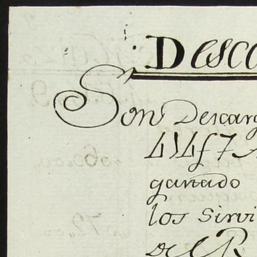 Desca
Son Descarg
ganado
los Sirvi
de el R